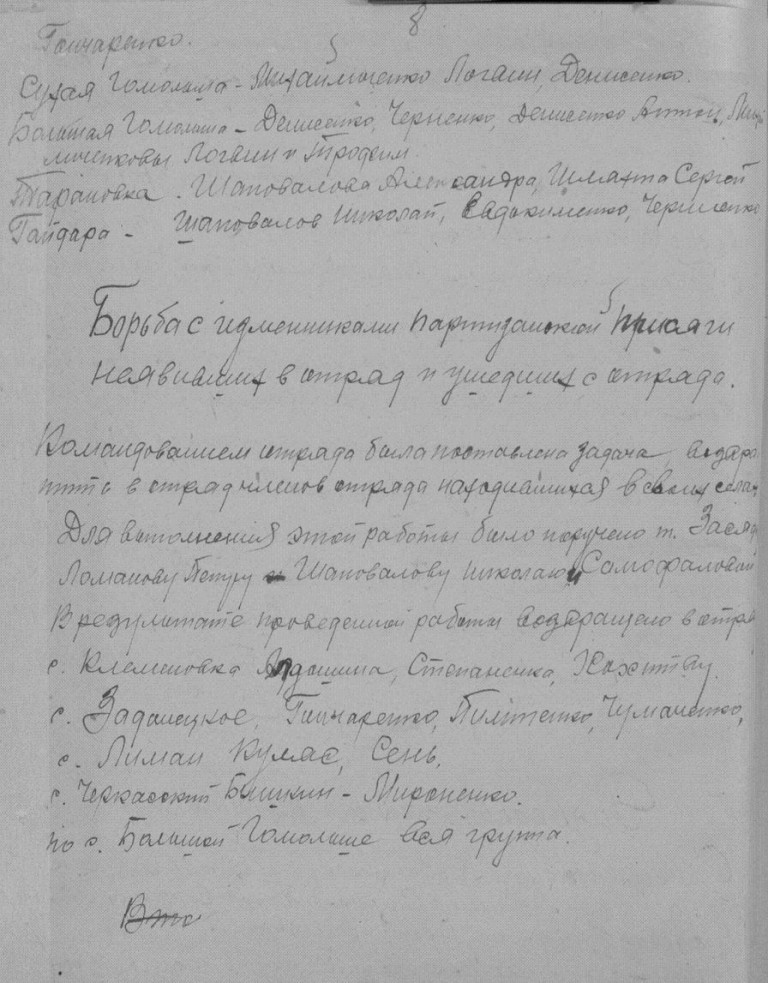 8
Гончаренко.
Сухая Гомольша - Михайличенко Логвин, Денисенко.
Большая Гомольша - Денисенко, Черненко, Денисенко Антон,
Логвин и Трофим
Тарановка - Шаповалова Александра, Шмахта Сергей
Гайдара - Шаповалов Николай, Евдокименко,
Борьба с изменниками партизанской присяги
неявивших в отряд и ушедших с отряда.
Командованием отряда была поставлена задача возвра
тить в отряд членов отряда находившихся в своих селах
Для выполнения этой работы было поручено т.
Ломанову Петру и Шаповалову Николаю и Самофаловой
В результате проведенной работы возвращено в отря
с. Клеменовка Степаненко,
с. Задонецкое, Гончаренко, Пилипенко, Чумаченко,
с. Лиман Куляс, Сень.
с. Черкасский Бишкин - Мироненко.
по с. Большой Гомольше вся группа.